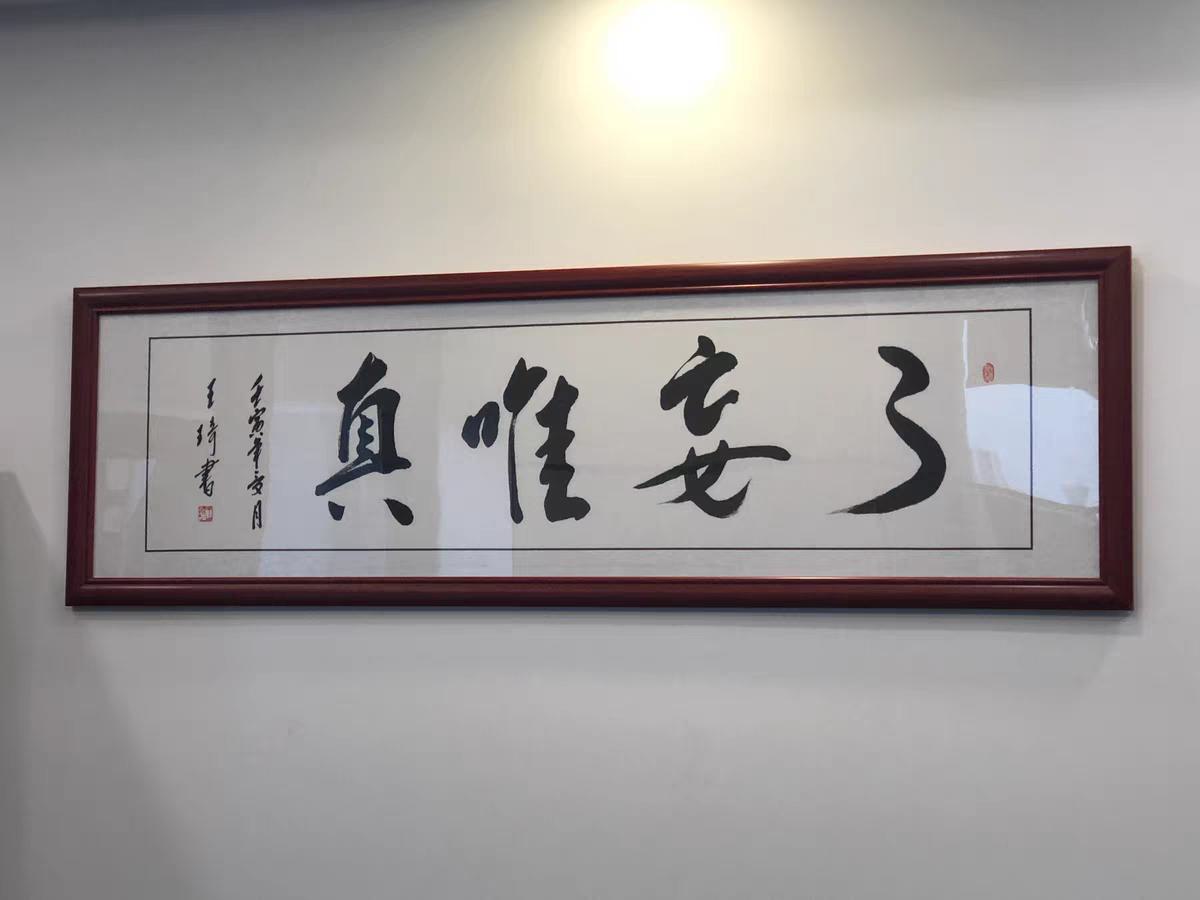 了妄唯真
壬寅年夏月
王琦書